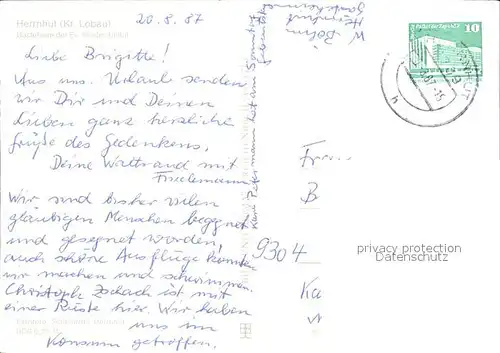 Herrnhut (Kr. Löbau)
20.8.87
Liebe Brigitte!
Aus uns. Urlaub senden
wir Dir und Deinen
Lieben ganz herzliche
Grüße des Gedenkens.
Deine Waltraud mit
Friedemann
Wir sind bisher vielen
gläubigen Menschen begegnet
und gesegnet worden,
auch schöne Ausflüge konnten
wir machen und schwimmen.
Christoph Zschach ist mit
einer Rüste hier. Wir haben
uns im
Konsum getroffen.
W. Böhm
Herrnhut
klein Petermann hat am Sonntag
Geburtstag
10
Frau
B
9304
Ka
privacy protection
Datenschutz